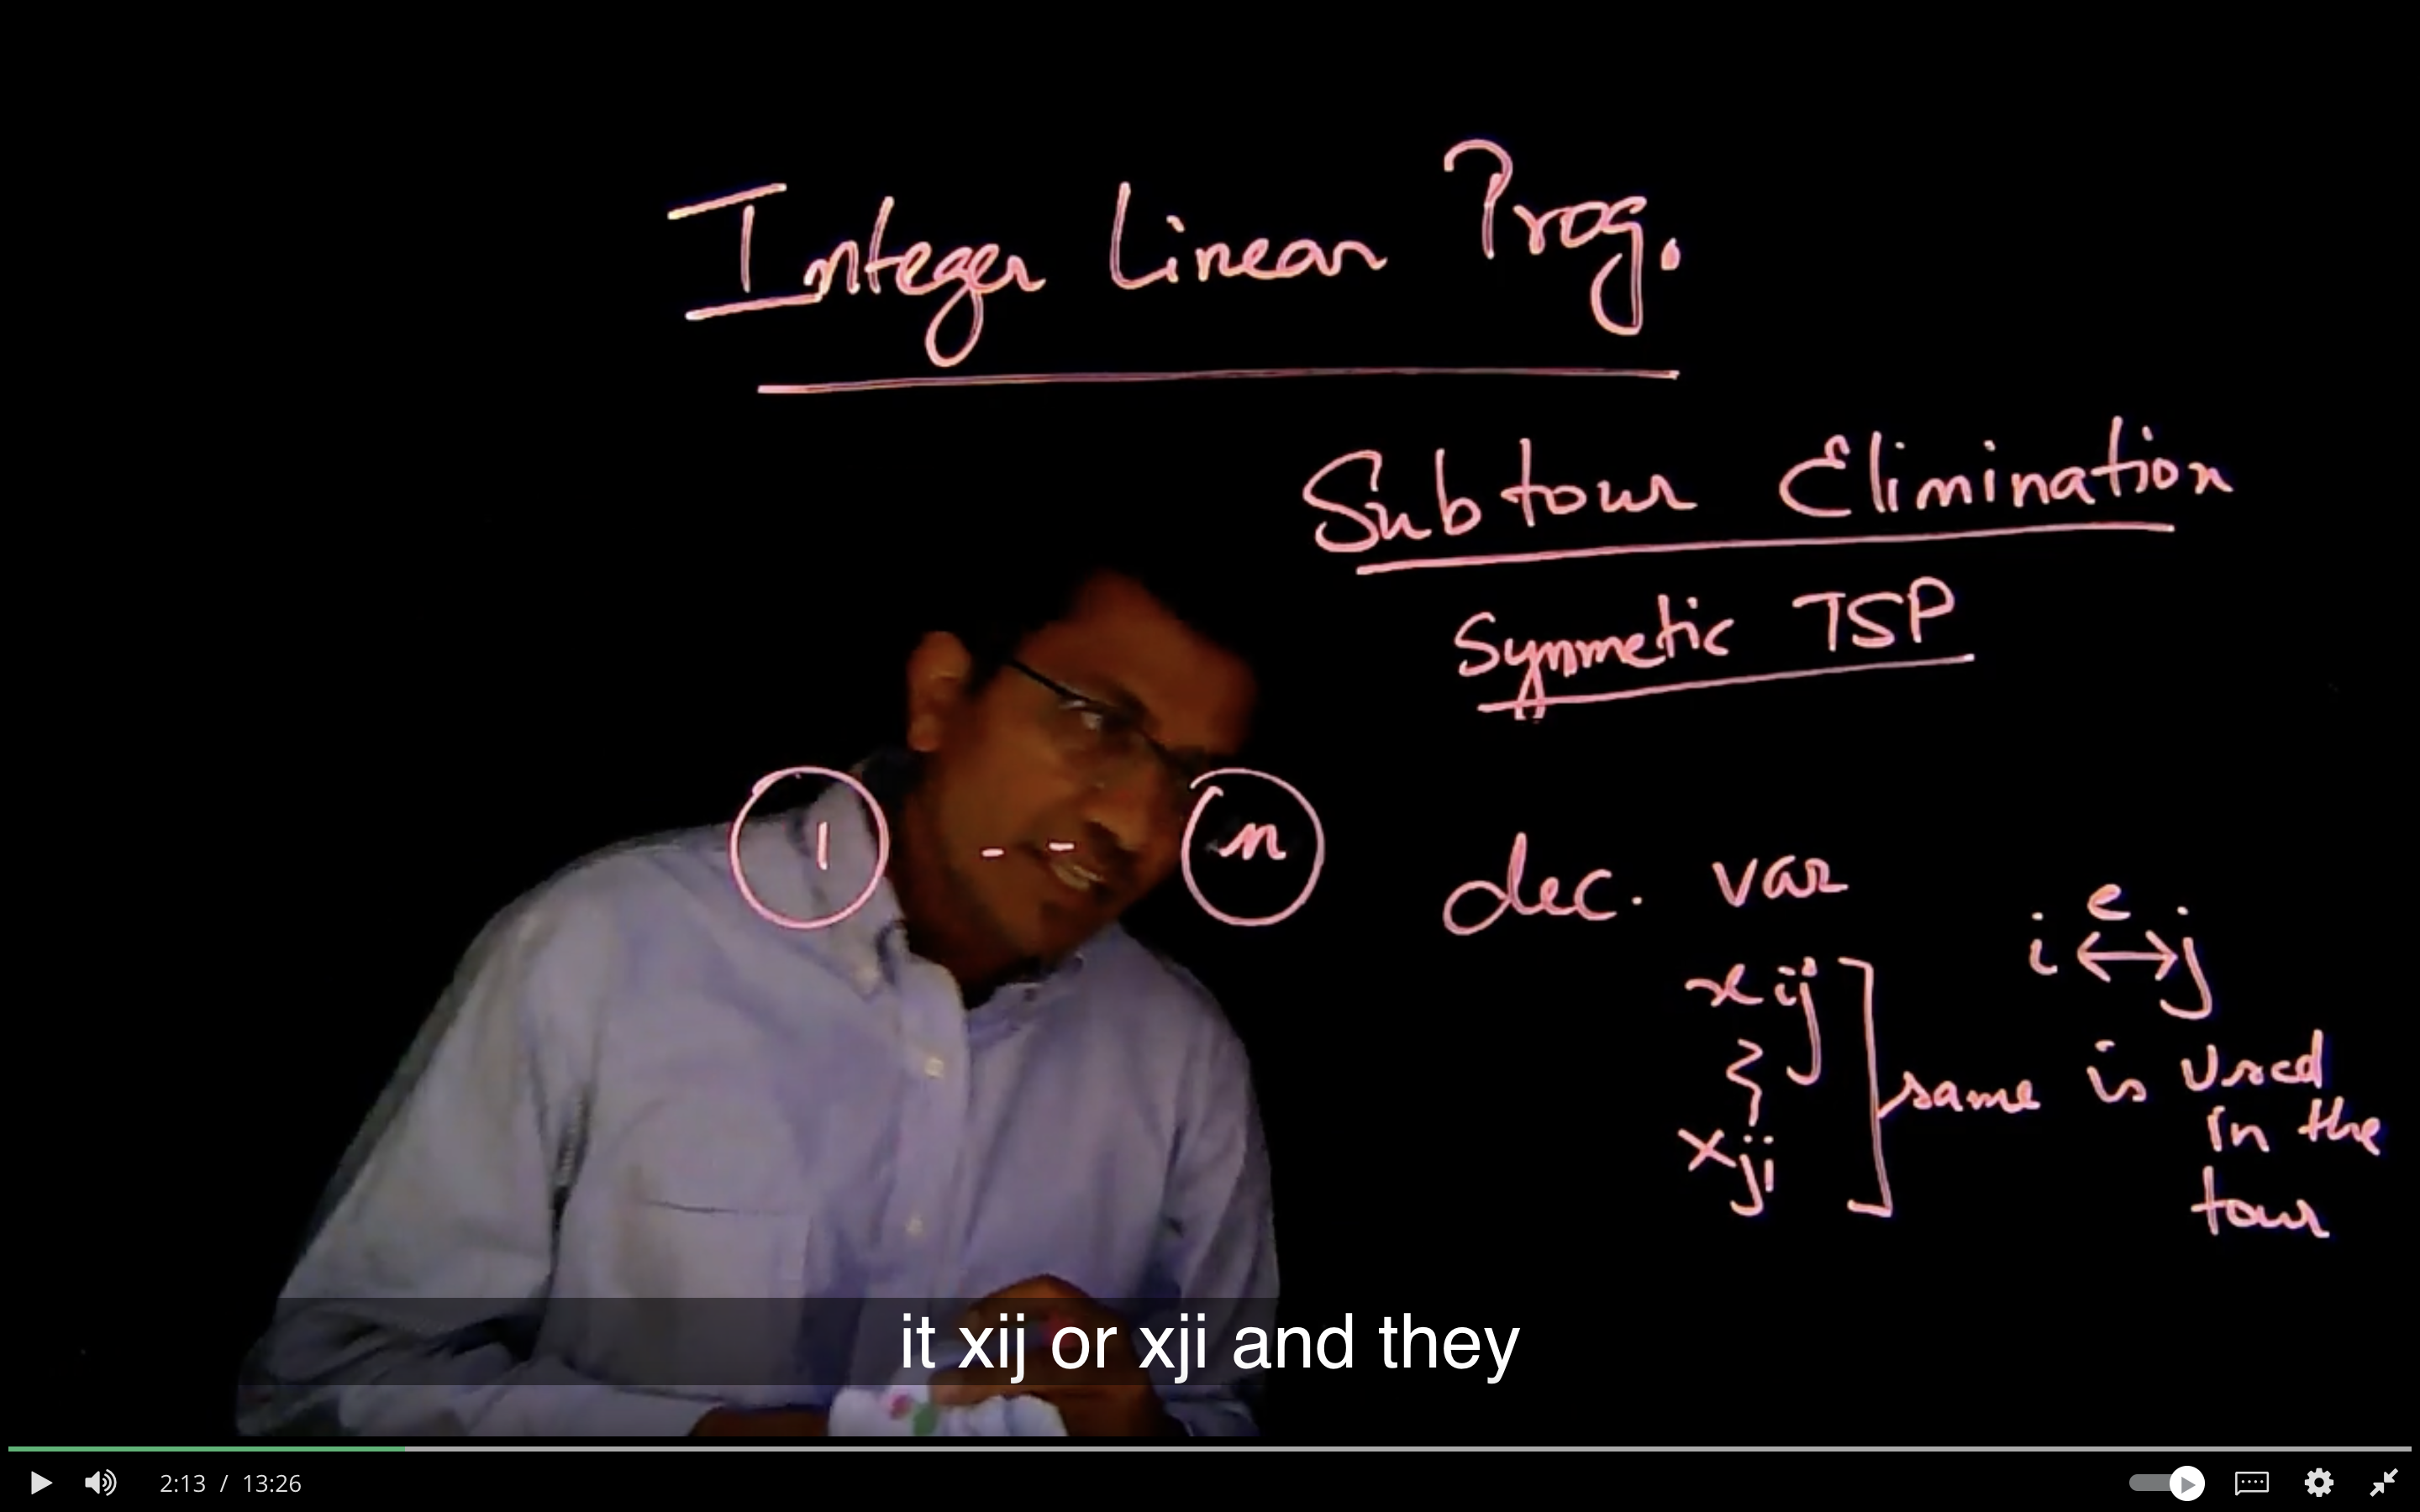 Integer Linear Prog.
Subtour Elimination
Symmetic TSP
1 - - n
dec. var
i e j
xij
xji
same is used
in the
tour
it xij or xji and they
2:13 / 13:26